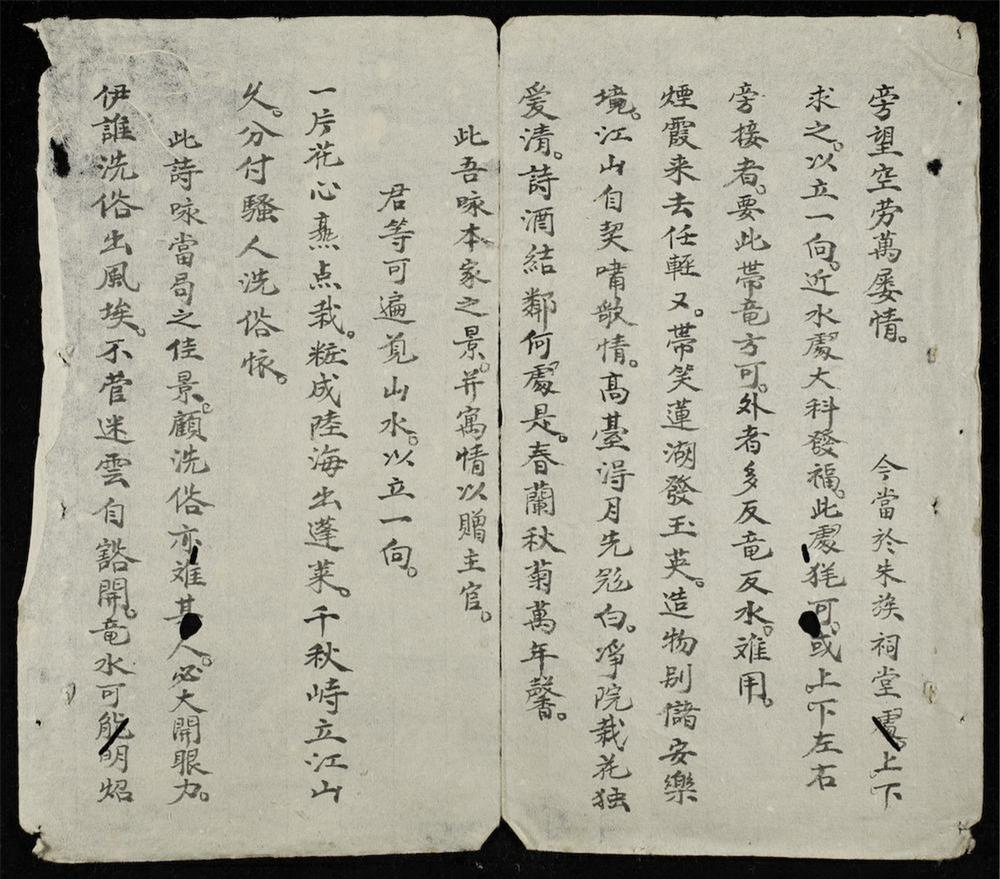 旁望空劳萬屡情。 今當於朱族祠堂處。上下
求之。以立一向。近水處大科發福。此處𤞑可。或上下左右
旁接者。要此帯竜方可。外者多反竜反水。难用。
煙霞来去任輕又。帶笑蓮湖發玉英。造物别儲安樂
境。江山自契嘯歌情。高臺淂月先迯白。凈院栽花独
爱清。詩酒結鄰何處是。春蘭秋菊萬年馨。
此吾咏本家之景。并寓情以贈主官。
君等可遍覓山水。以立一向。
一片花心𤍠点栽。粧成陸海出蓬莱。千秋峙立江山
久。分付騷人洗俗懷。
此詩咏當局之佳景。顧洗俗亦难其人。必大開眼力。
伊誰洗俗出風埃。不菅迷雲自豁開。竜水可能明炤